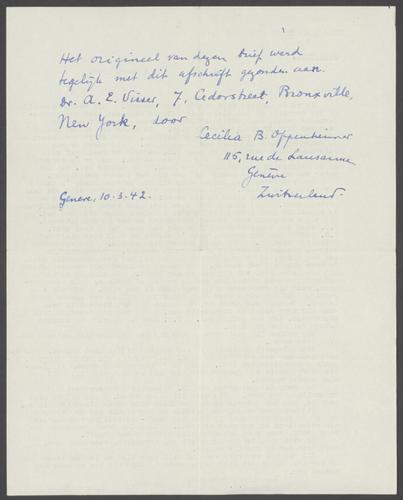 Het origineel van dezen brief werd
tegelijk met dit afschrift gezonden aan
Dr. A. E. Visser, 7, Cedorstreet, Bronxville,
New York, door
Cecilia B. Oppenheimer
115, rue de Lausanne
Genève
Zwitserland.
Genève, 10.3.42.